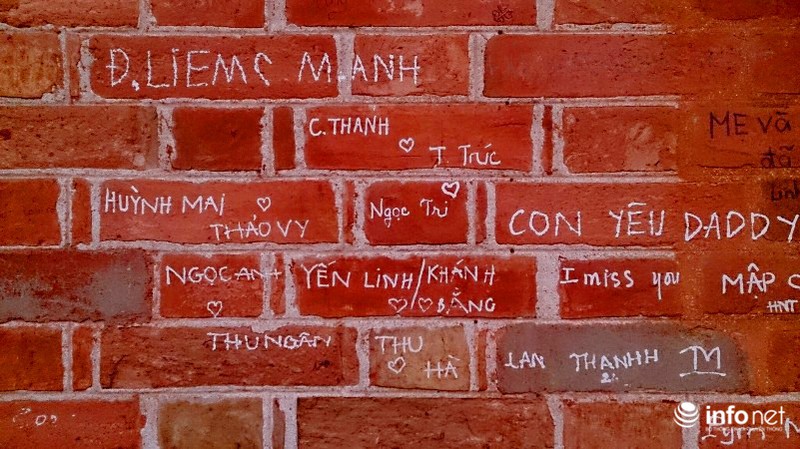 Đ.LIEMC M.ANH
C.THANH
T. Trúc
MẸ và
đã
HUỲNH MAI
THẢO VY
Ngọc Trí
CON YÊU DADDY
NGỌC ANH
YẾN LINH/KHÁNH
BĂNG
I miss you
MẬP
HNT
THU NGÂN
THU
HÀ
LAN THANHH
infonet